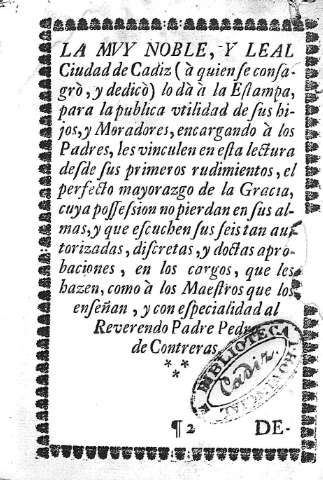 LA MVY NOBLE, Y LEAL
Ciudad de Cadiz (à quien se consa-
grò, y dedicò) lo dà à la Estampa,
para la publica vtilidad de sus hi-
jos, y Moradores, encargando à los
Padres, les vinculen en esta lectura
desde sus primeros rudimientos, el
perfecto mayorazgo de la Gracia,
cuya possession no pierdan en sus al-
mas, y que escuchen sus seis tan au-
torizadas, discretas, y doctas apro-
baciones, en los cargos, que les
hazen, como à los Maestros que los
enseñan, y con especialidad al
Reverendo Padre Pedro
de Contreras
***
BIBLIOTECA PROVINCIAL
Cadiz.
¶2 DE-